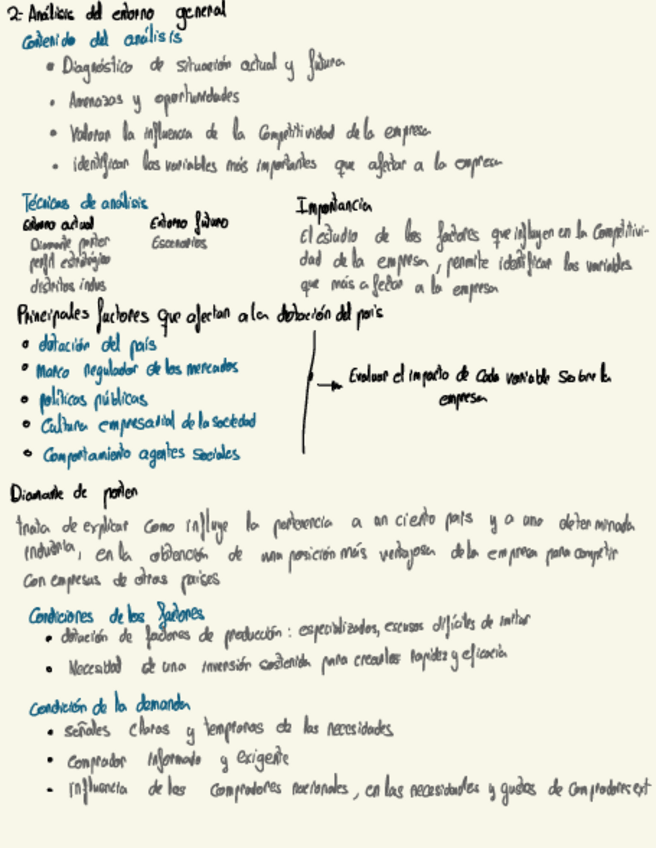 2- Análisis del entorno general
Contenido del análisis
• Diagnóstico de situación actual y futura
• Amenazas y oportunidades
• Valorar la influencia de la Competitividad de la empresa
• identificar las variables más importantes que afectar a la empresa
Técnicas de análisis
Entorno actual Entorno futuro
Diamante porter Escenarios
perfil estratégico
distritos indus
Importancia
El estudio de los factores que influyen en la Competitivi-
dad de la empresa, permite identificar las variables
que más afectar a la empresa
Principales factores que afectan a la dotación del país
• dotación del país
• Marco regulador de los mercados
• políticas públicas
• Cultura empresarial de la sociedad
• Comportamiento agentes sociales
→ Evaluar el impacto de cada variable sobre la
empresa
Diamante de porter
trata de explicar como influye la pertenencia a un cierto país y a una determinada
industria, en la obtención de una posición más ventajosa de la empresa para competir
con empresas de otros países
Condiciones de los factores
• dotación de factores de producción: especializados, escasos difíciles de imitar
• Necesidad de una inversión sostenida para crearlos rapidez y eficacia
Condición de la demanda
• señales claras y tempranas de las necesidades
• comprador informado y exigente
• influencia de los compradores nacionales, en las necesidades y gustos de compradores ext